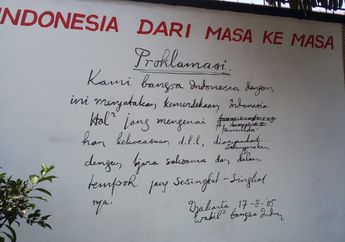 INDONESIA DARI MASA KE MASA
Proklamasi.
Kami bangsa Indonesia dengan
ini menjatakan kemerdekaan Indonesia
Hal² jang mengenai
kan kekoeasaan d.l.l, diselenggarakan
dengan tjara saksama dan dalam
tempoh jang sesingkat-singkat
nja.
Djakarta 17-8-05
Wakil² bangsa Indon